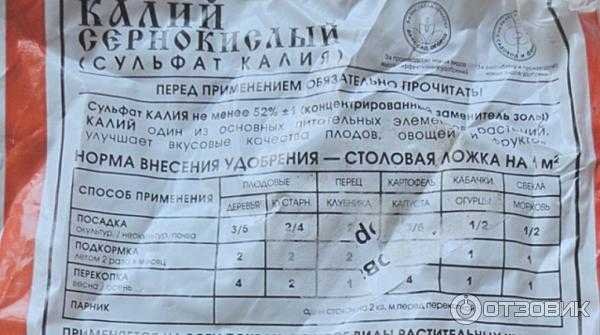 КАЛИЙ
СЕРНОКИСЛЫЙ
(СУЛЬФАТ КАЛИЯ)
ПЕРЕД ПРИМЕНЕНИЕМ ОБЯЗАТЕЛЬНО ПРОЧИТАТЬ!
Сульфат КАЛИЯ не менее 52% ±1 (концентрированный заменитель золы)
КАЛИЙ один из основных питательных растений,
улучшает вкусовые качества плодов, овощей
НОРМА ВНЕСЕНИЯ УДОБРЕНИЯ — СТОЛОВАЯ ЛОЖКА НА 1 м²
СПОСОБ ПРИМЕНЕНИЯ ПЛОДОВЫЕ ПЕРЕЦ КАРТОФЕЛЬ КАБАЧКИ СВЕКЛА
ДЕРЕВЬЯ КУСТАРН. КЛУБНИКА КАПУСТА ОГУРЦЫ МОРКОВЬ
ПОСАДКА 3/5 2/4 1/2 1/2
окультур. / неокультур. / почва
ПОДКОРМКА 2 2 1 1
летом 2 раза в месяц
ПЕРЕКОПКА 4 2 4 1 1
весна / осень
ПАРНИК на 2 кв. м перед
ОТЗОВИК